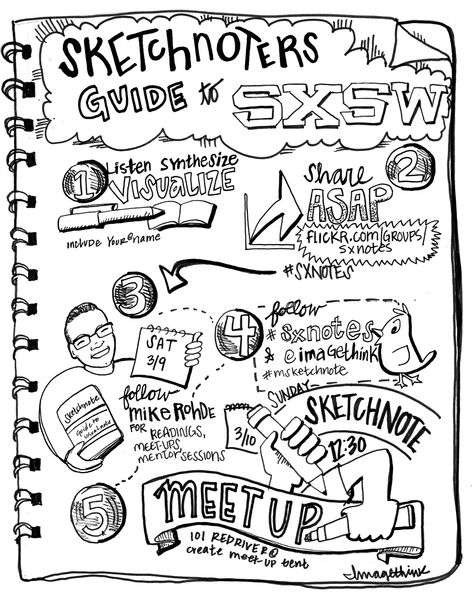 SKETCHNOTERS
GUIDE to SXSW
1
Listen synthesize
VISUALIZE
include Your@name
2
share
ASAP
flickr.com/groups/
sxnotes
#SXNOTES
3
SAT
3/9
follow
mike ROHDE
FOR READINGS,
MEET-UPS,
mentor sessions
sketchnote
4
follow
#sxnotes
& @imagethink
#msketchnote
5
SUNDAY
3/10
SKETCHNOTE
12:30
MEET UP
101 REDRIVER@
create meet-up tent
Imagethink